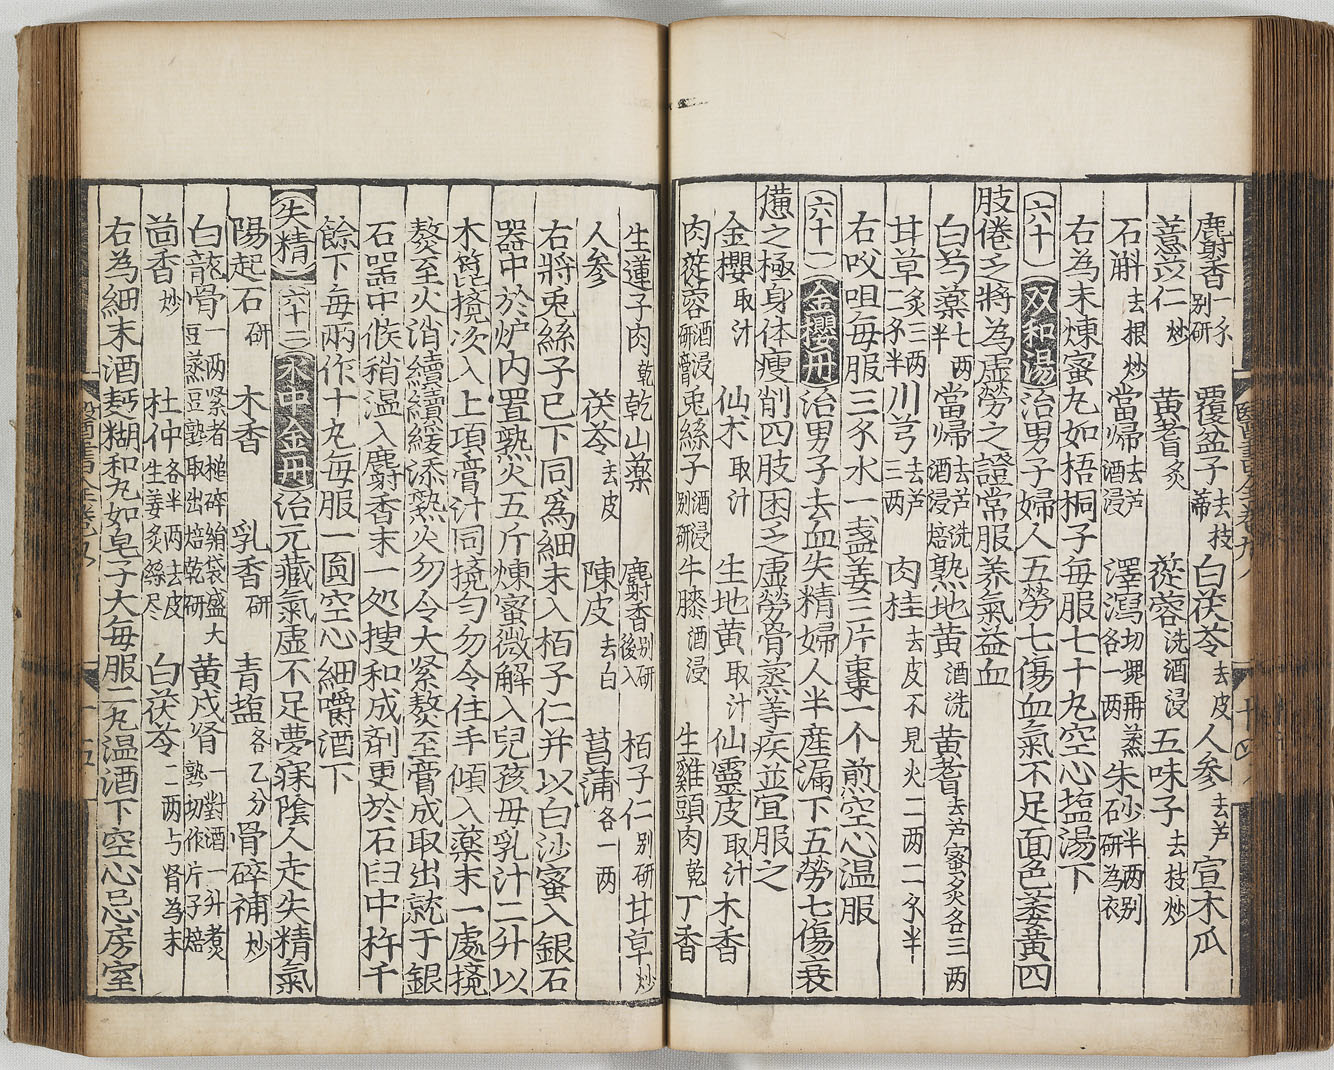 麝香一分别研 覆盆子去枝蒂 白茯苓去皮 人参去芦 宣木瓜
薏苡仁炒 黄耆炙 蓯蓉洗酒浸 五味子去枝炒
石斛去根炒 當歸去芦酒浸 澤瀉切塊再蒸各一两 朱砂半两别研為衣
右為末煉蜜丸如梧桐子毎服七十丸空心塩湯下
六十 双和湯 治男子婦人五勞七傷血氣不足面色萎黄四
肢倦乏將為虚勞之證常服养氣益血
白芍藥七两半 當歸去芦洗酒浸焙 熟地黄酒洗 黄耆去芦蜜炙各三两
甘草炙三两二分半 川芎去芦三两 肉桂去皮不見火二两一分半
右㕮咀毎服三分水一盏姜三片棗一个煎空心温服
六十一 金櫻丹 治男子去血失精婦人半産漏下五勞七傷衰
憊之極身体瘦削四肢困乏虚勞骨蒸等疾並宜服之
金櫻取汁 仙朩取汁 生地黄取汁 仙靈皮取汁 木香
肉蓯蓉酒浸研膏 兎絲子酒浸别研 牛膝酒浸 生雞頭肉乾 丁香
生蓮子肉乾 乾山藥 麝香别研後入 栢子仁别研 甘草炒
人参 茯苓去皮 陳皮去白 菖蒲各一两
右將兎絲子已下同爲細末入栢子仁并以白沙蜜入銀石
器中於炉内置熟火五斤煉蜜微解入兒孩母乳汁二升以
木箆攪次入上項膏汁同攪匀勿令住手傾入藥末一處攪
熬至火消續續緩添熟火勿令大紧熬至膏成取出就于銀
石器中候稍温入麝香末一処搜和成剤更於石臼中杵千
餘下毎兩作十丸毎服一圓空心細嚼酒下
失精 六十二 水中金丹 治元藏氣虚不足夢寐陰人走失精氣
陽起石研 木香 乳香研 青塩各乙分 骨碎補炒
白龍骨一两紧者槌碎絹袋盛大豆蒸豆熟取出焙乾研 黄戌肾一對酒一升煮熟切作片子焙
茴香炒 杜仲各半两去皮生姜炙絲尽 白茯苓二两与肾為末
右為細末酒麪糊和丸如皂子大毎服二丸温酒下空心忌房室